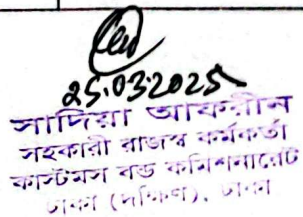 25.03.2025
সাদিয়া আফরীন
সহকারী রাজস্ব কর্মকর্তা
কাস্টমস বন্ড কমিশনারেট
ঢাকা (দক্ষিণ), ঢাকা